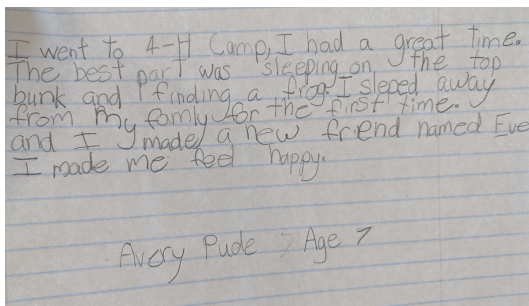 I went to 4-H Camp, I had a great time.
The best part was sleeping on the top
bunk and finding a frog. I sleped away
from my family for the first time.
and I made a new friend named Eve
I made me feel happy.
Avery Pude Age 7